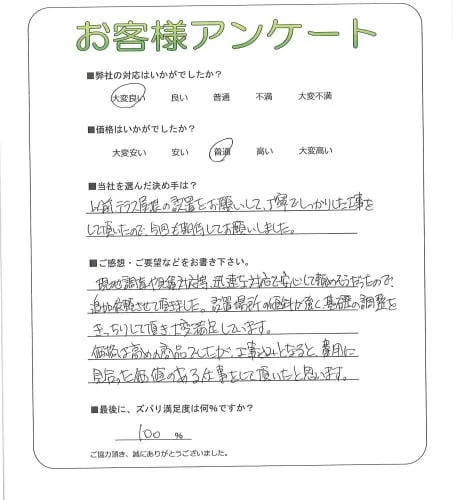 お客様アンケート
■弊社の対応はいかがでしたか？
大変良い 良い 普通 不満 大変不満
■価格はいかがでしたか？
大変安い 安い 普通 高い 大変高い
■当社を選んだ決め手は？
以前テラス屋根の設置をお願いして、丁寧でしっかりした工事を
して頂いたので、今回も期待してお願いしました。
■ご感想・ご要望などをお書き下さい。
現地調査や見積対応等、迅速な対応で安心して頼めそうだったので、
追加依頼させて頂きました。設置場所の傾斜が強く基礎の調整を
きっちりして頂き大変満足しています。
価格は高めの商品でしたが、工事込みとなると、費用に
見合った価値のある仕事をして頂いたと思います。
■最後に、ズバリ満足度は何％ですか？
100 %
ご協力頂き、誠にありがとうございました。